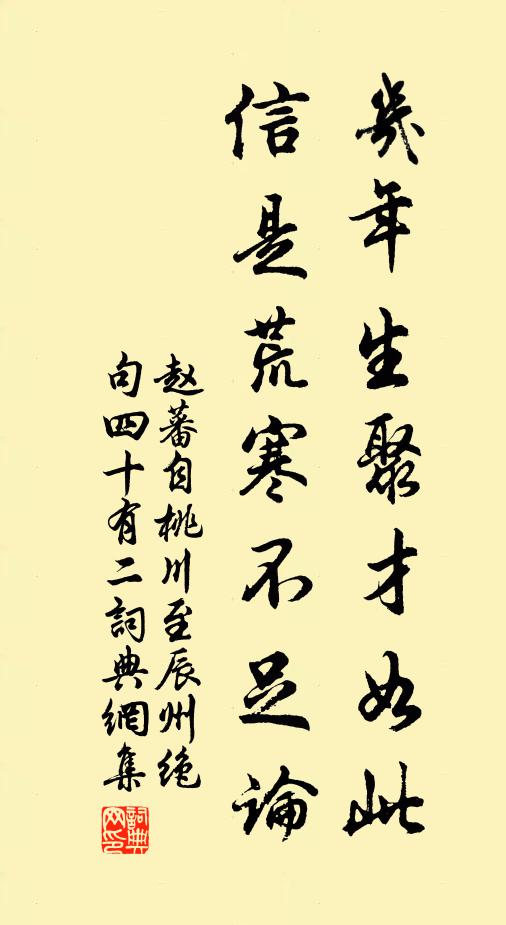 幾年生聚才如此
信是荒寒不足論
赵蕃自桃川至辰州绝
句四十有二詞典網集
詞典
网印